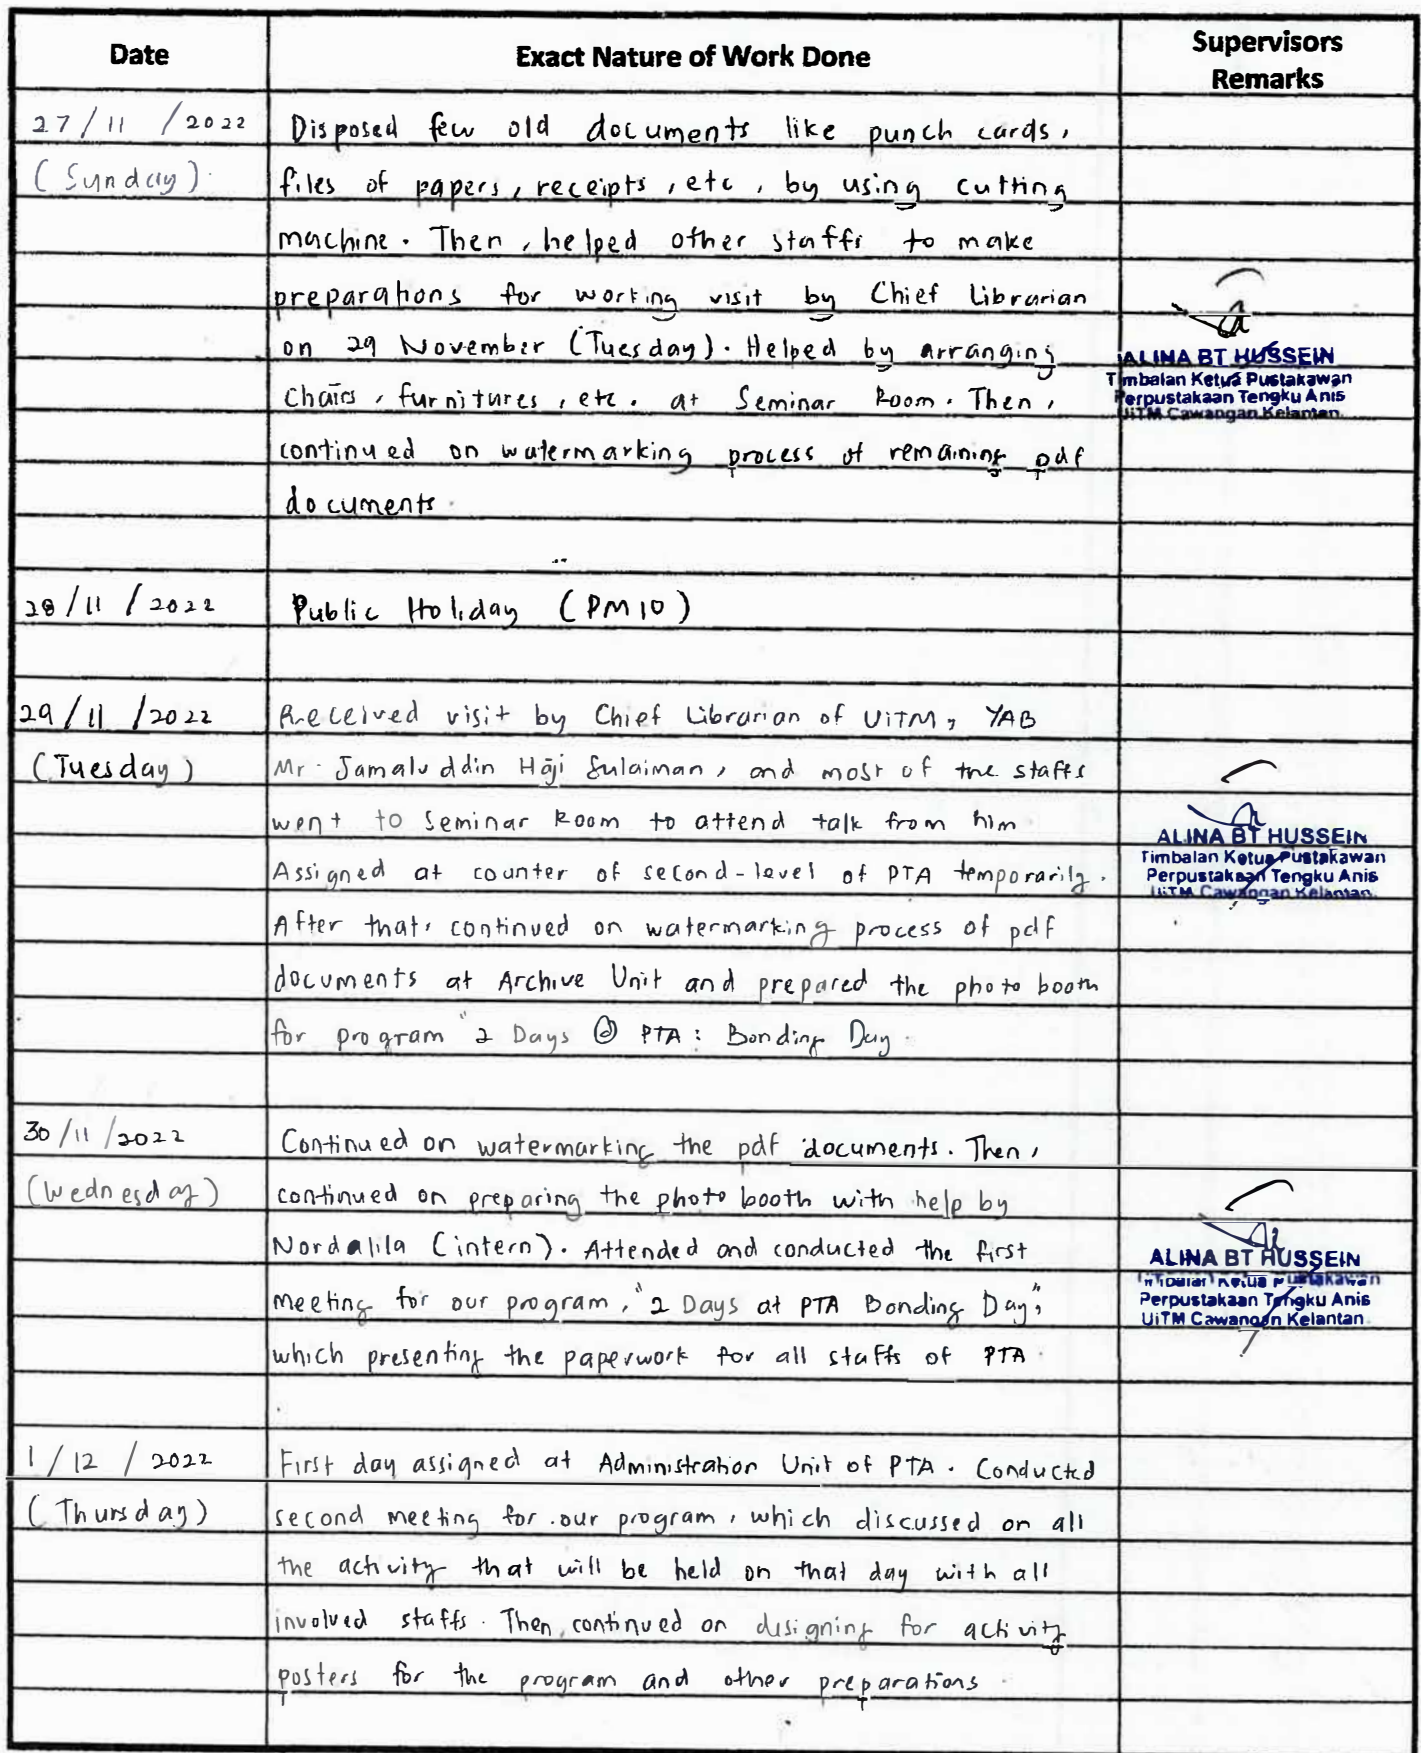 Date Exact Nature of Work Done Supervisors Remarks
27/11/2022 Disposed few old documents like punch cards,
(Sunday) files of papers, receipts, etc, by using cutting
machine. Then, helped other staffs to make
preparations for working visit by Chief Librarian
on 29 November (Tuesday). Helped by arranging
chairs, furnitures, etc. at Seminar Room. Then,
continued on watermarking process of remaining pdf
documents.
ALINA BT HUSSEIN
Timbalan Ketua Pustakawan
Perpustakaan Tengku Anis
UiTM Cawangan Kelantan
28/11/2022 Public Holiday (PM10)
29/11/2022 Received visit by Chief Librarian of UiTM, YAB
(Tuesday) Mr. Jamaluddin Haji Sulaiman, and most of the staffs
went to Seminar Room to attend talk from him
Assigned at counter of second-level of PTA temporarily.
After that, continued on watermarking process of pdf
documents at Archive Unit and prepared the photo booth
for program "2 Days @ PTA: Bonding Day.
ALINA BT HUSSEIN
Timbalan Ketua Pustakawan
Perpustakaan Tengku Anis
UiTM Cawangan Kelantan
30/11/2022 Continued on watermarking the pdf documents. Then,
(Wednesday) continued on preparing the photo booth with help by
Nordalila (intern). Attended and conducted the first
meeting for our program, "2 Days at PTA Bonding Day",
which presenting the paperwork for all staffs of PTA.
ALINA BT HUSSEIN
Timbalan Ketua Pustakawan
Perpustakaan Tengku Anis
UiTM Cawangan Kelantan
1/12/2022 First day assigned at Administration Unit of PTA. Conducted
(Thursday) second meeting for our program, which discussed on all
the activity that will be held on that day with all
involved staffs. Then, continued on designing for activity
posters for the program and other preparations.